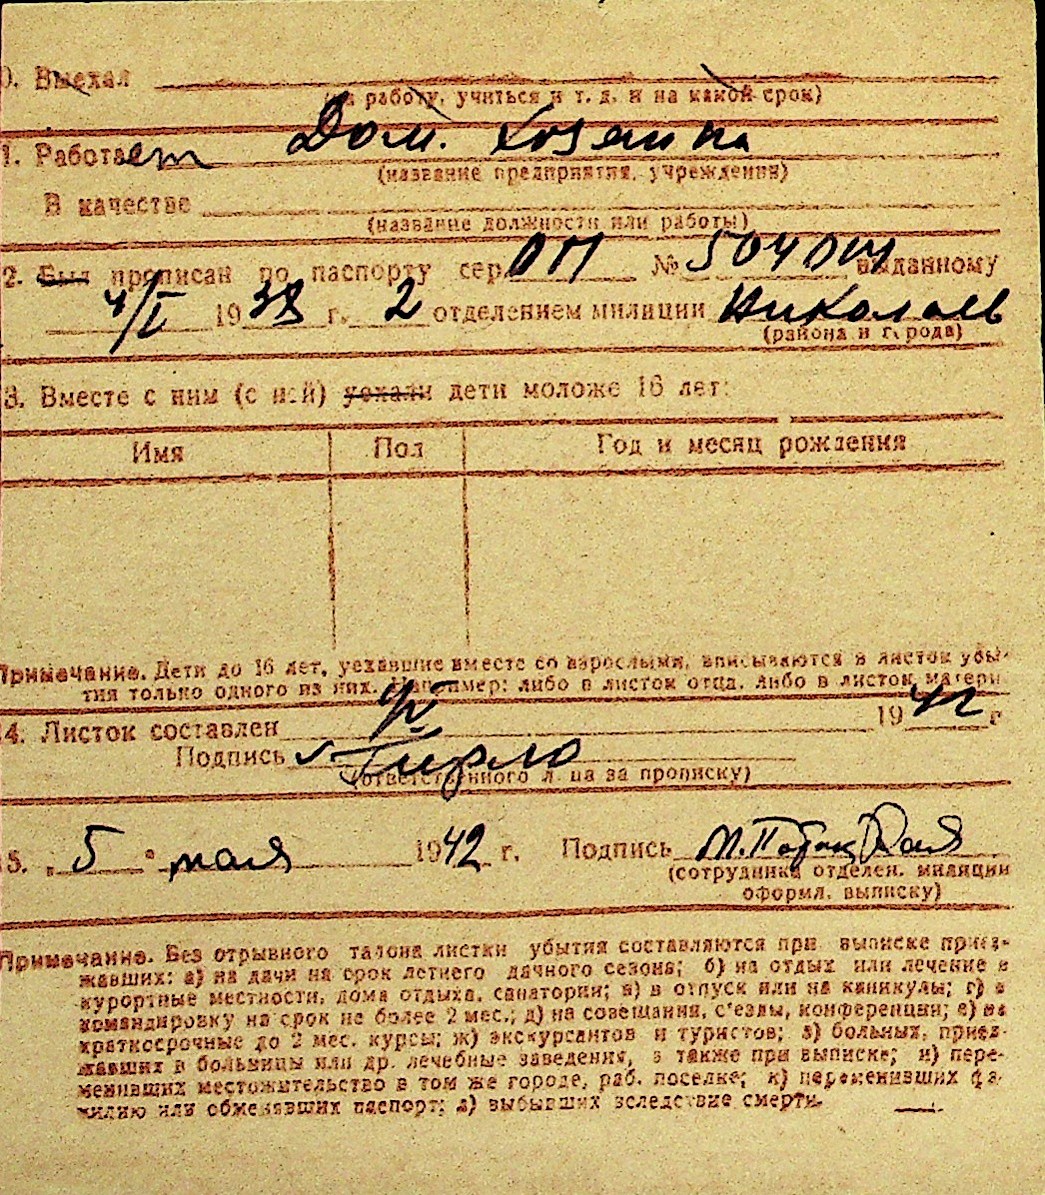 0. Выехал
(на работу, учиться и т. д. и на какой срок)
1. Работает Дом. Хозяйка
(название предприятия, учреждения)
В качестве
(название должности или работы)
2. Был прописан по паспорту сер. ОП № 504004 выданному
4/I 1938 г. 2 отделением милиции Николаев
(района и города)
3. Вместе с ним (с ней) уехали дети моложе 16 лет:
Имя Пол Год и месяц рождения
Примечание. Дети до 16 лет, уехавшие вместе со взрослыми, вписываются в листок убы-
тия только одного из них. Например: либо в листок отца, либо в листок матери
4. Листок составлен 1942 г
Подпись
(ответственного лица за прописку)
5. „5" мая 1942 г. Подпись
(сотрудника отделен. милиции
оформл. выписку)
Примечание. Без отрывного талона листки убытия составляются при выписке приез-
жавших: а) на дачи на срок летнего дачного сезона; б) на отдых или лечение в
курортные местности, дома отдыха, санатории; в) в отпуск или на каникулы; г) в
командировку на срок не более 2 мес.; д) на совещания, с'езды, конференции; е) на
краткосрочные до 2 мес. курсы; ж) экскурсантов и туристов; з) больных, приез-
жавших в больницы или др. лечебные заведения, а также при выписке; и) пере-
менивших местожительство в том же городе, раб. поселке; к) переменивших фа-
милию или обменявших паспорт; л) выбывших вследствие смерти.